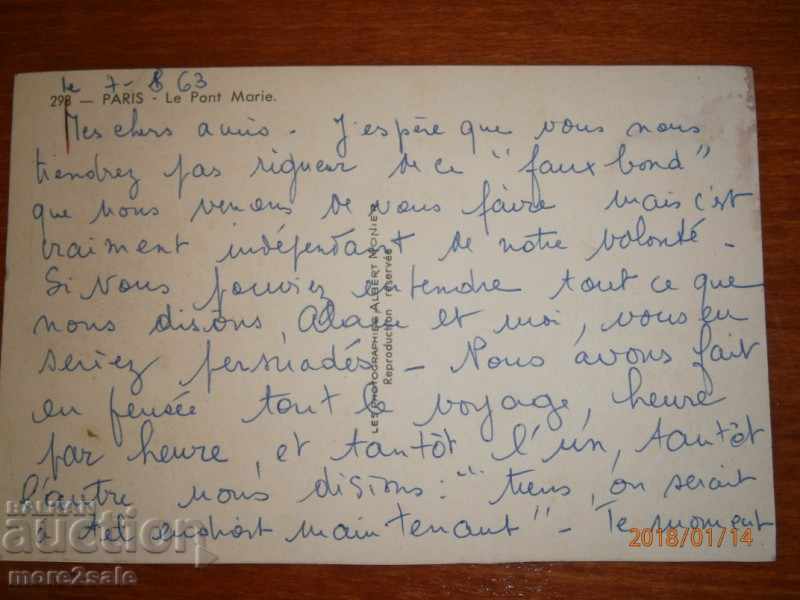 le 7-8 63
298 — PARIS - Le Pont Marie.
Mes chers amis. J'espère que vous nous
tiendrez pas rigueur de ce "faux bond"
que nous venons de vous faire mais c'est
vraiment indépendant de notre volonté.
Si vous pouviez entendre tout ce que
nous disions, et moi, vous en
seriez persuadés - Nous avons fait
en pensée tout le voyage, heure
par heure, et tantôt l'un, tantôt
l'autre nous disions: "tiens, on serait
à tel endroit maintenant" - Te moment
LES PHOTOGRAPHIES ALBERT MONIER
Reproduction réservée
BALKAN
auction
more2sale
2018/01/14